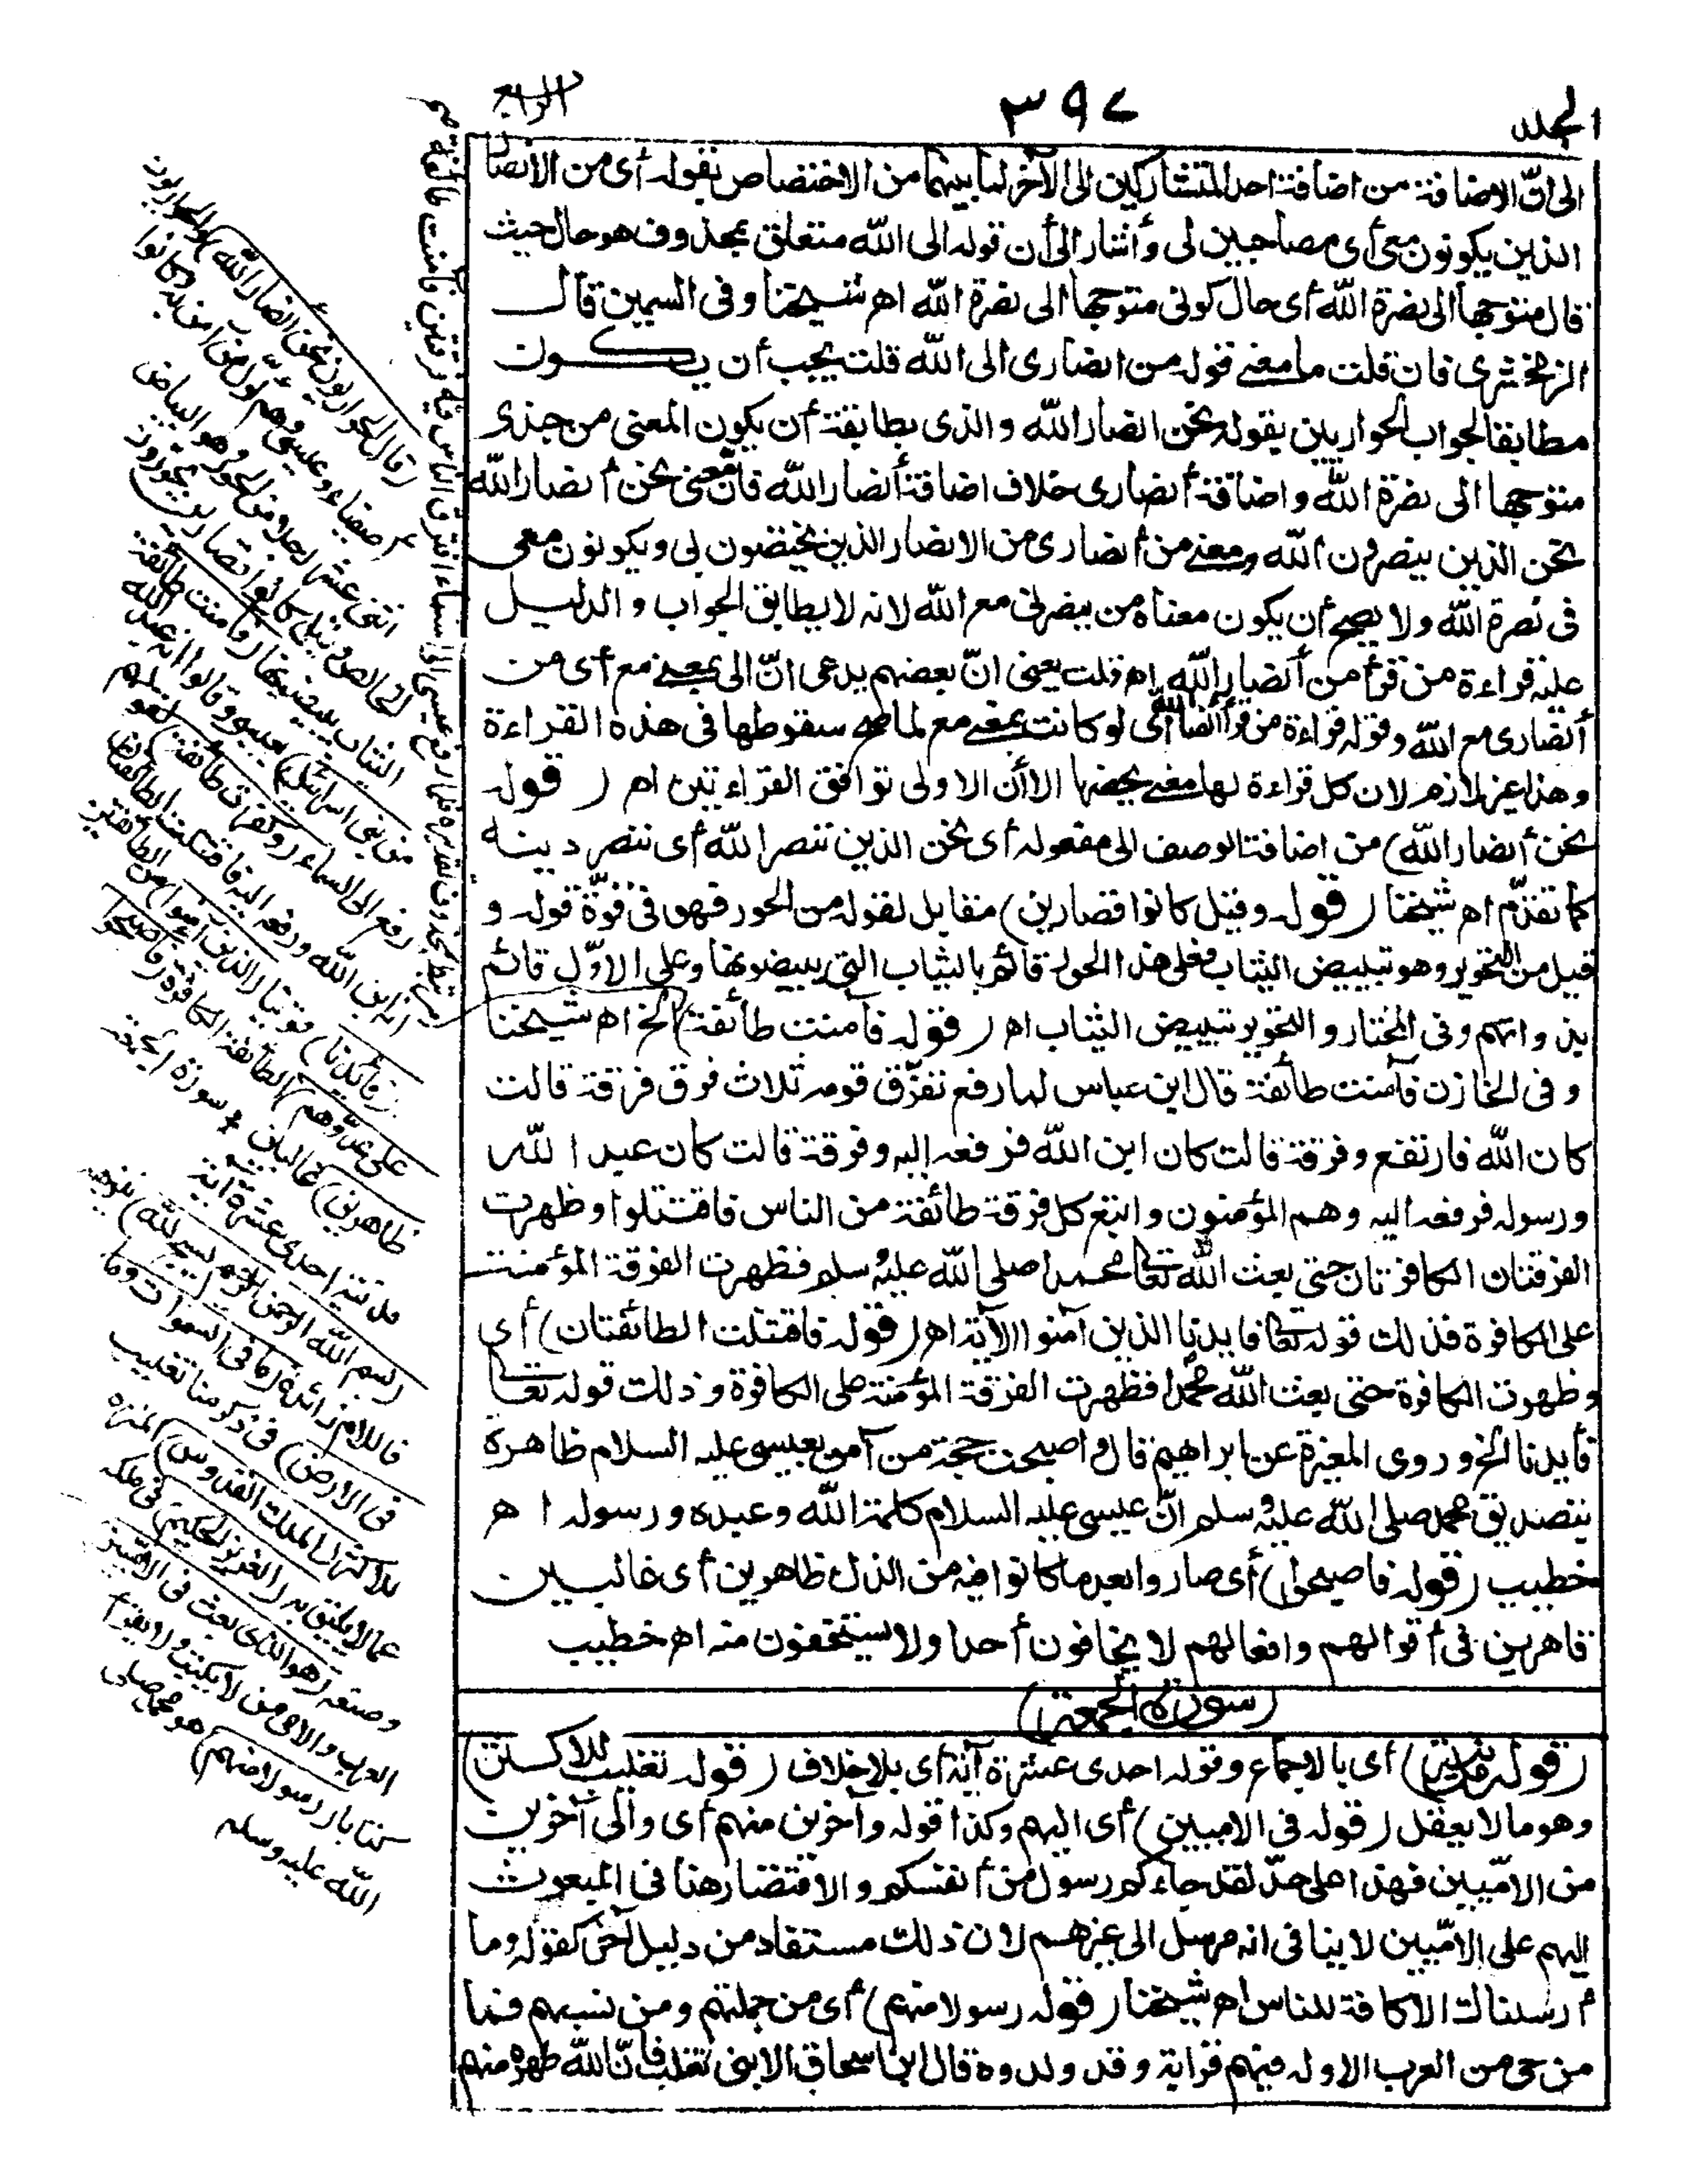 المجلد
٣٩٧
الرابع
الى انّ الاضافة من اضافة احد المتشاركين الى الآخر لما بينهما من الاختصاص بقوله أى من الانصا
الذين يكونون معى أى مصاحبين لى وأشار الى أن قوله الى الله متعلق بمحذوف هو حال حيث
قال متوجها الى نصرة الله أى حال كونى متوجها الى نصرة الله اه شيخنا وفى السمين قال
الزمخشرى فان قلت ما معنى قوله من انصارى الى الله قلت يجب أن يكون
مطابقا لجواب الحواريين بقوله نحن انصار الله والذى يطابقة أن يكون المعنى من جندى
متوجها الى نصرة الله واضافة أنصارى خلاف اضافة أنصار الله فان معنى نحن أنصار الله
نحن الذين ينصرون الله ومعنى من أنصارى من الانصار الذين يختصون بى ويكونون معى
فى نصرة الله ولا يصح أن يكون معناه من ينصرنى مع الله لانه لا يطابق الجواب والدليل
عليه قراءة من قرأ من أنصار الله اه قلت يعنى انّ بعضهم يدعى انّ الى بمعنى مع أى من
أنصارى مع الله وقوله قراءة من قرأ أنصار الله أى لو كانت بمعنى مع لما صح سقوطها فى هذه القراءة
وهذا غير لازم لان كل قراءة لها معنى يخصها الا أن الاولى توافق القراءتين اه (قوله
نحن أنصار الله) من اضافة الوصف الى مفعوله أى نحن الذين ننصر الله أى ننصر دينه
كما تقدّم اه شيخنا (قوله وقيل كانوا قصارين) مقابل لقوله من الحور فهو فى قوّة قوله و
قيل من التحوير وهو تبييض الثياب فعلى هذا الحور قائم بالثياب التى يبيضونها وعلى الاوّل قائم
بذواتهم وفى المختار والتحوير تبييض الثياب اه (قوله فآمنت طائفة) الخ اه شيخنا
وفى الخازن فآمنت طائفة قال ابن عباس لما رفع تفرّق قومه ثلاث فرق فرقة قالت
كان الله فارتفع وفرقة قالت كان ابن الله فرفعه اليه وفرقة قالت كان عبد الله
ورسوله فرفعه اليه وهم المؤمنون واتبع كل فرقة طائفة من الناس فاقتتلوا وظهرت
الفرقتان الكافرتان حتى بعث الله تعالى محمدا صلى الله عليه وسلم فظهرت الفرقة المؤمنة
على الكافرة فذلك قوله تعالى فايدنا الذين آمنوا الآية اه (قوله فاقتتلت الطائفتان) أى
وظهرت الكافرة حتى بعث الله محمدا فظهرت الفرقة المؤمنة على الكافرة وذلك قوله تعالى
فأيدنا الخ وروى المغيرة عن ابراهيم قال واصبحت حجة من آمن بعيسى عليه السلام ظاهرة
بتصديق محمد صلى الله عليه وسلم انّ عيسى عليه السلام كلمة الله وعبده ورسوله اه
خطيب (قوله فاصبحوا) أى صاروا بعد ما كانوا فيه من الذل ظاهرين أى غالبين
قاهرين فى أقوالهم وافعالهم لا يخافون أحدا ولا يستخفون منه اه خطيب
(سورة الجمعة)
(قوله مدنية) أى بالاجماع وقوله احدى عشرة آية أى بلا خلاف (قوله تغليب للاكثر)
وهو ما لا يعقل (قوله فى الاميين) أى اليهم وكذا قوله وآخرين منهم أى والى آخرين
من الامّيين فهذا على حدّ لقد جاءكم رسول من أنفسكم والاقتصار هنا فى المبعوث
اليهم على الامّيين لا ينافى انه مرسل الى غيرهم لان ذلك مستفاد من دليل آخر كقوله وما
أرسلناك الا كافة للناس اه شيخنا (قوله رسولا منهم) أى من جملتهم ومن نسبهم فما
من حى من العرب الا وله فيهم قرابة وقد ولدوه قال ابن اسحاق الا بنى تغلب فانّ الله طهره منهم
(قال الحواريون نحن انصار الله) والحواريون
أصفياء عيسى وهم أوّل من آمن به وكانوا
اثنى عشر رجلا من الحور وهو البياض
الخالص وقيل كانوا قصارين يحورون
الثياب يبيضونها (فآمنت طائفة
من بنى اسرائيل) بعيسى وقالوا انه عبد الله
رفع الى السماء (وكفرت طائفة) لقولهم
انه ابن الله ورفعه اليه فاقتتلت الطائفتان
(فأيدنا) قوّينا (الذين آمنوا) من الطائفتين
(على عدوّهم) الطائفة الكافرة (فاصبحوا
ظاهرين) غالبين * سورة الجمعة
مدنية احدى عشرة آية
(بسم الله الرحمن الرحيم يسبح لله) ينزهه
فاللام زائدة (ما فى السموات وما
فى الارض) فى ذكر ما تغليب
للاكثر (الملك القدوس) المنزه
عما لا يليق به (العزيز الحكيم) فى ملكه
وصنعه (هو الذى بعث فى الاميين)
العرب والامى من لا يكتب ولا يقرأ
كتابا (رسولا منهم) هو محمد صلى
الله عليه وسلم